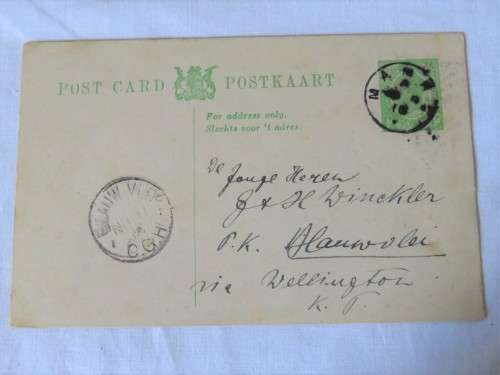 POST CARD POSTKAART
For address only.
Slechts voor 't adres.
De Jonge Heren
J & H Winckler
P.K. Blauwvlei
via Wellington
K. P.
BLAUW VLEI
C.G.H.